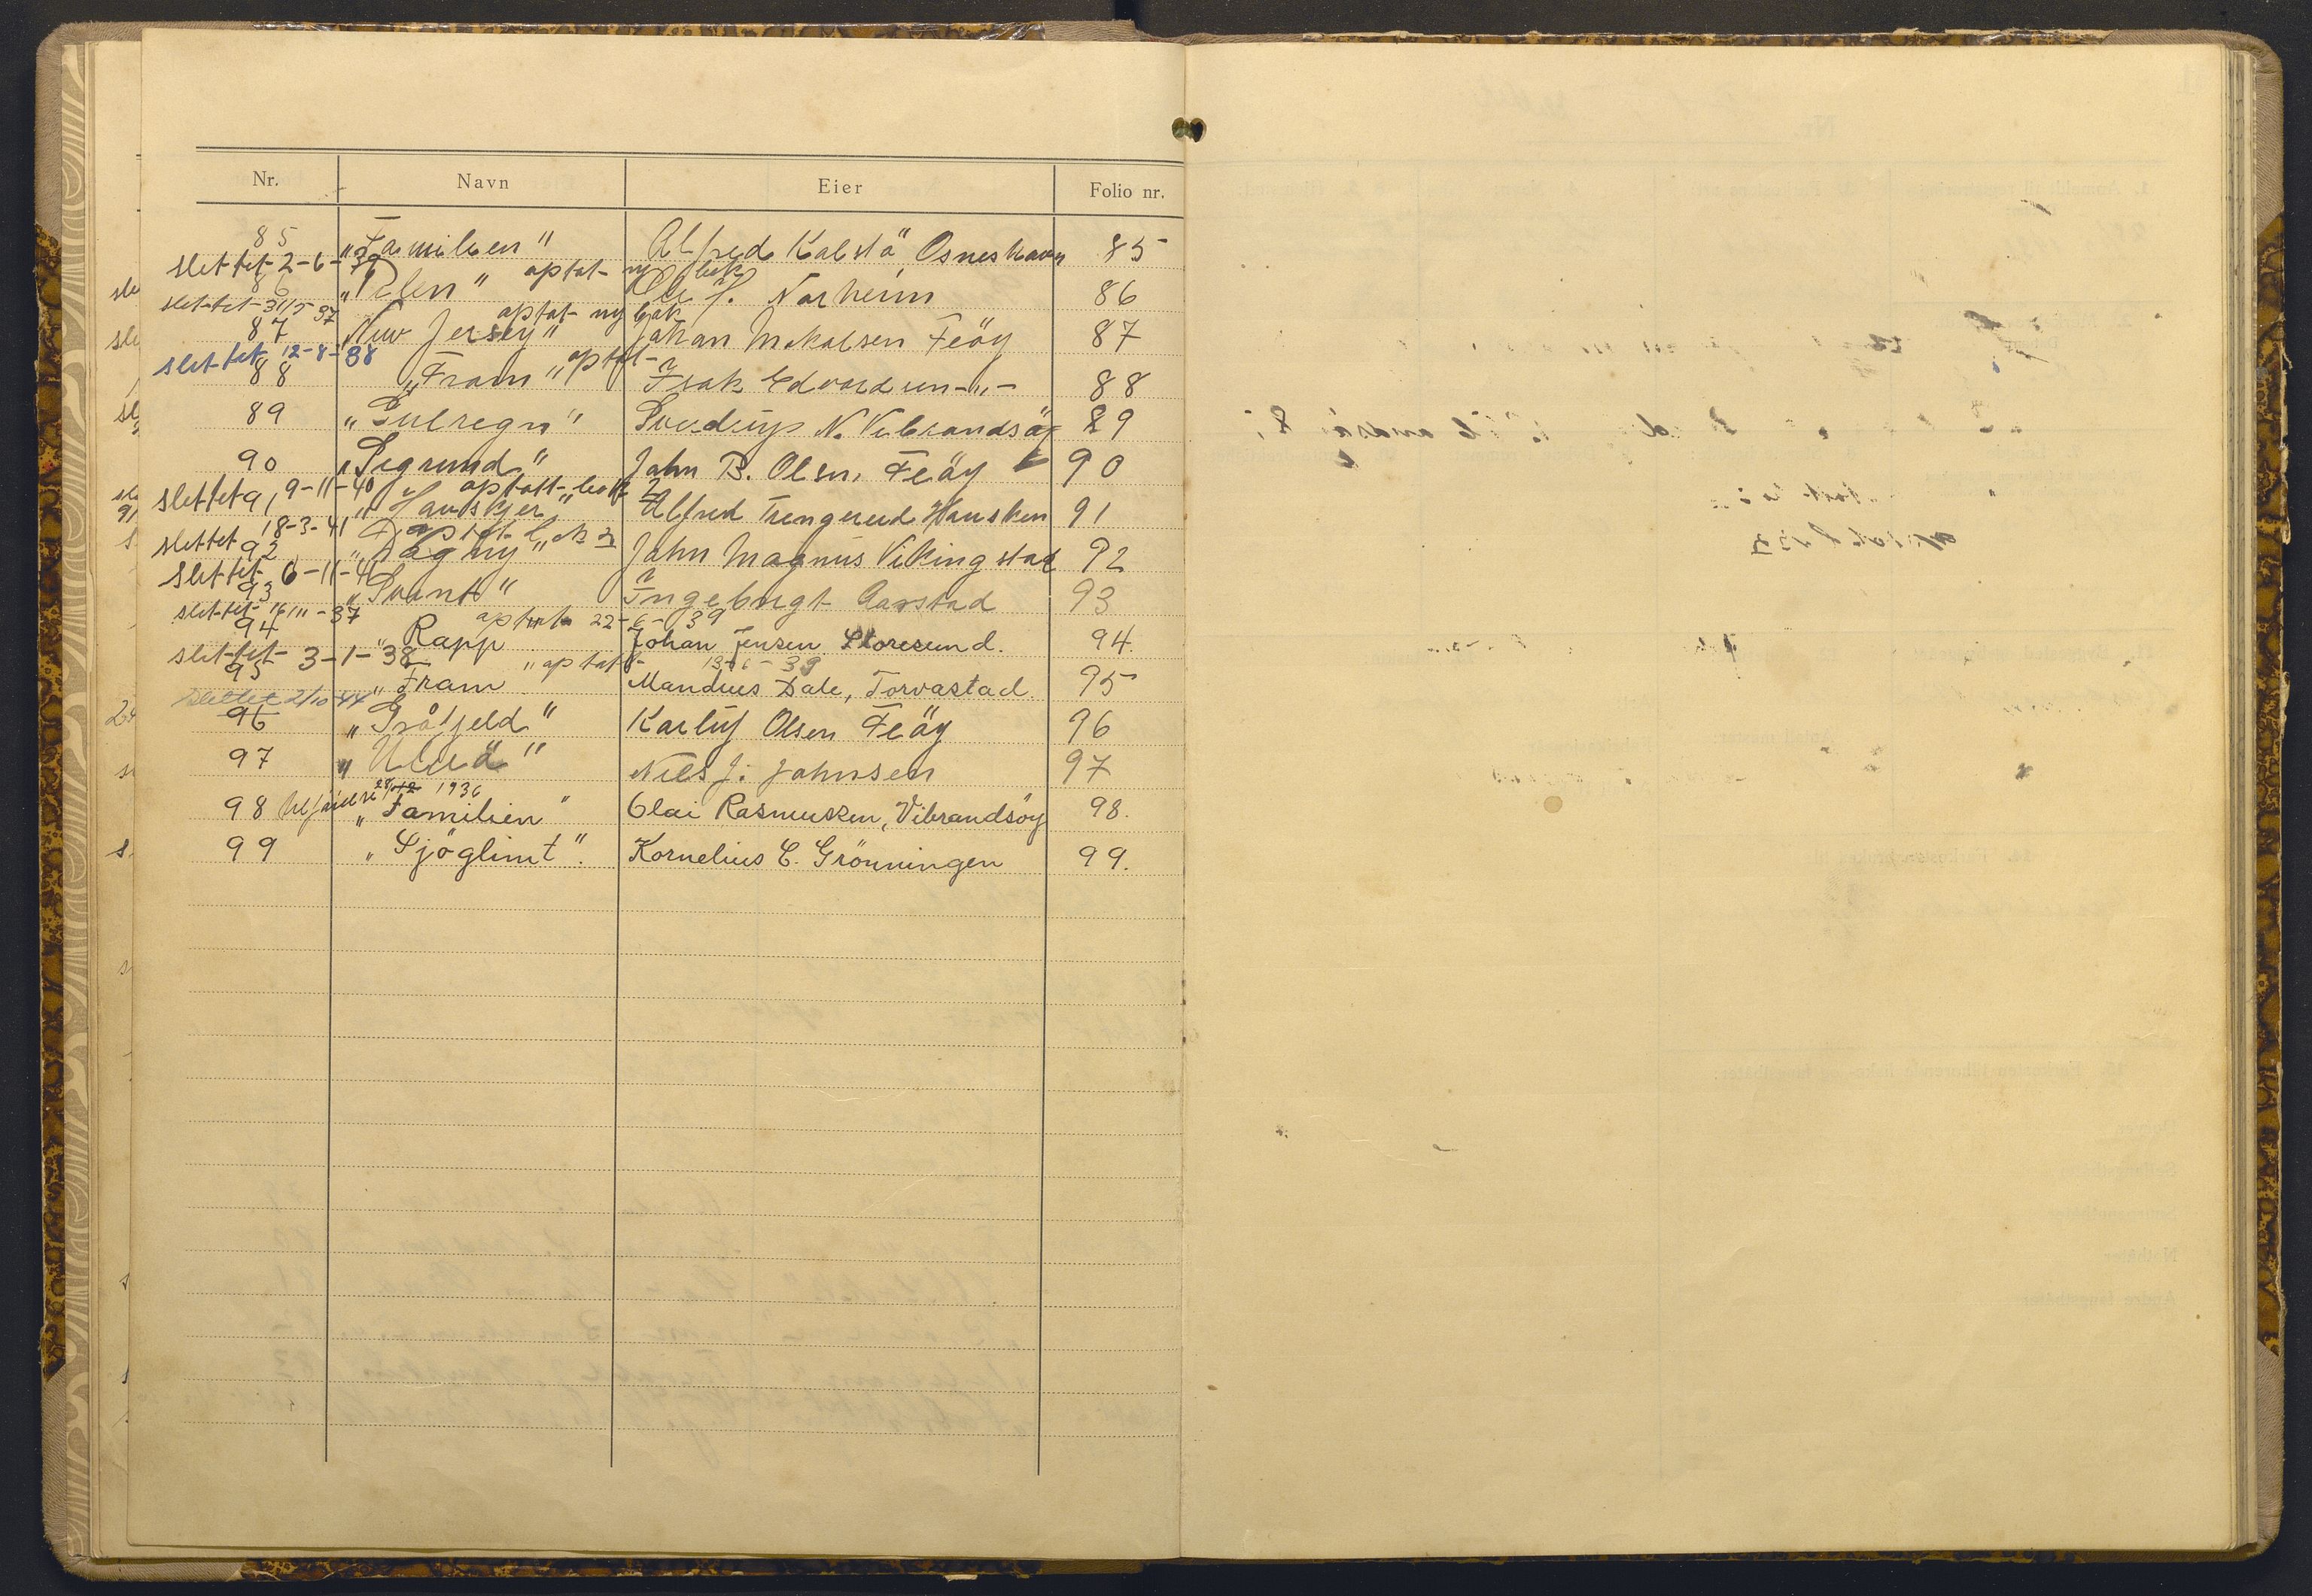 Nr. Navn Eier Folio nr.
85 „Familien" Alfred Kalstö, Osneshavn 85
slettet 2-6-39 optat ny bok
86 „Pelen" Ole J. Norheim 86
slettet 31/5 37 optat ny bok
87 „New Jersey" Johan Mikalsen Feöy 87
slettet 12-8-38 optat
88 „Fram" Isak Edvardsen -"- 88
89 „Gulregn" Sverdrup N. Vibrandsöy 89
90 „Sigrund" John B. Olsen, Feöy 90
slettet 9-11-40 optatt bok 2
91 „Hauskjer" Alfred Trengereid Hausken 91
slettet 18-3-41 optat bok 2
92 „Dagny" John Magnus Vikingstad 92
Slettet 6-11-41
93 „Svint" Ingebrigt Aarstad 93
slettet 16/11-37 optat 22-6-39
94 „Rapp" Johan Jensen Storesund. 94.
slettet 3-1-38 optatt 13-6-39
95 „Fram" Mandius Dale, Torvastad. 95
slettet 2/10 44
96 „Gråfjeld" Karluf Olsen Feöy 96
97 Nils J. Johnsen 97
28/12 1936
98 „Familien" Olai Rasmussen, Vibrandsöy 98.
99 „Sjöglimt". Kornelius C. Grönningen 99.